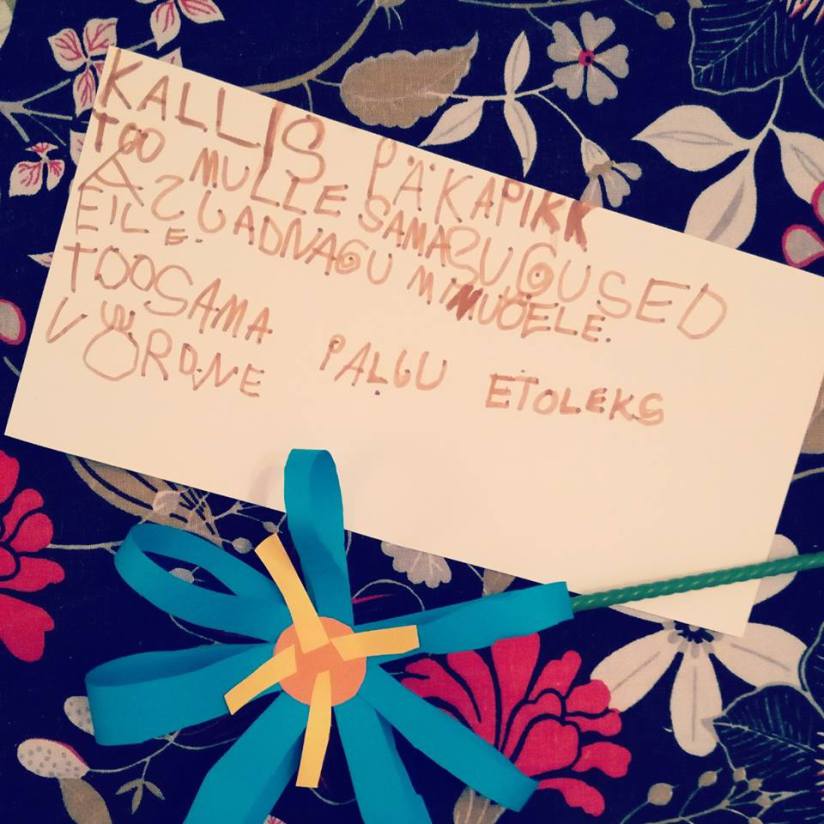 KALLIS PÄKAPIKK
TOO MULLE SAMASUGUSED
ASJADNAGU MINUÕELE.
EILE.
TOOSAMA PALJU ETOLEKS
VÕRDNE